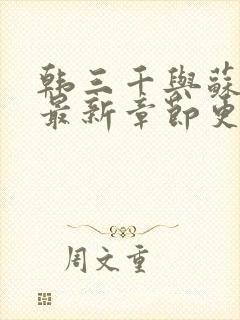 韩三千與蘇
最新章節更
周文重